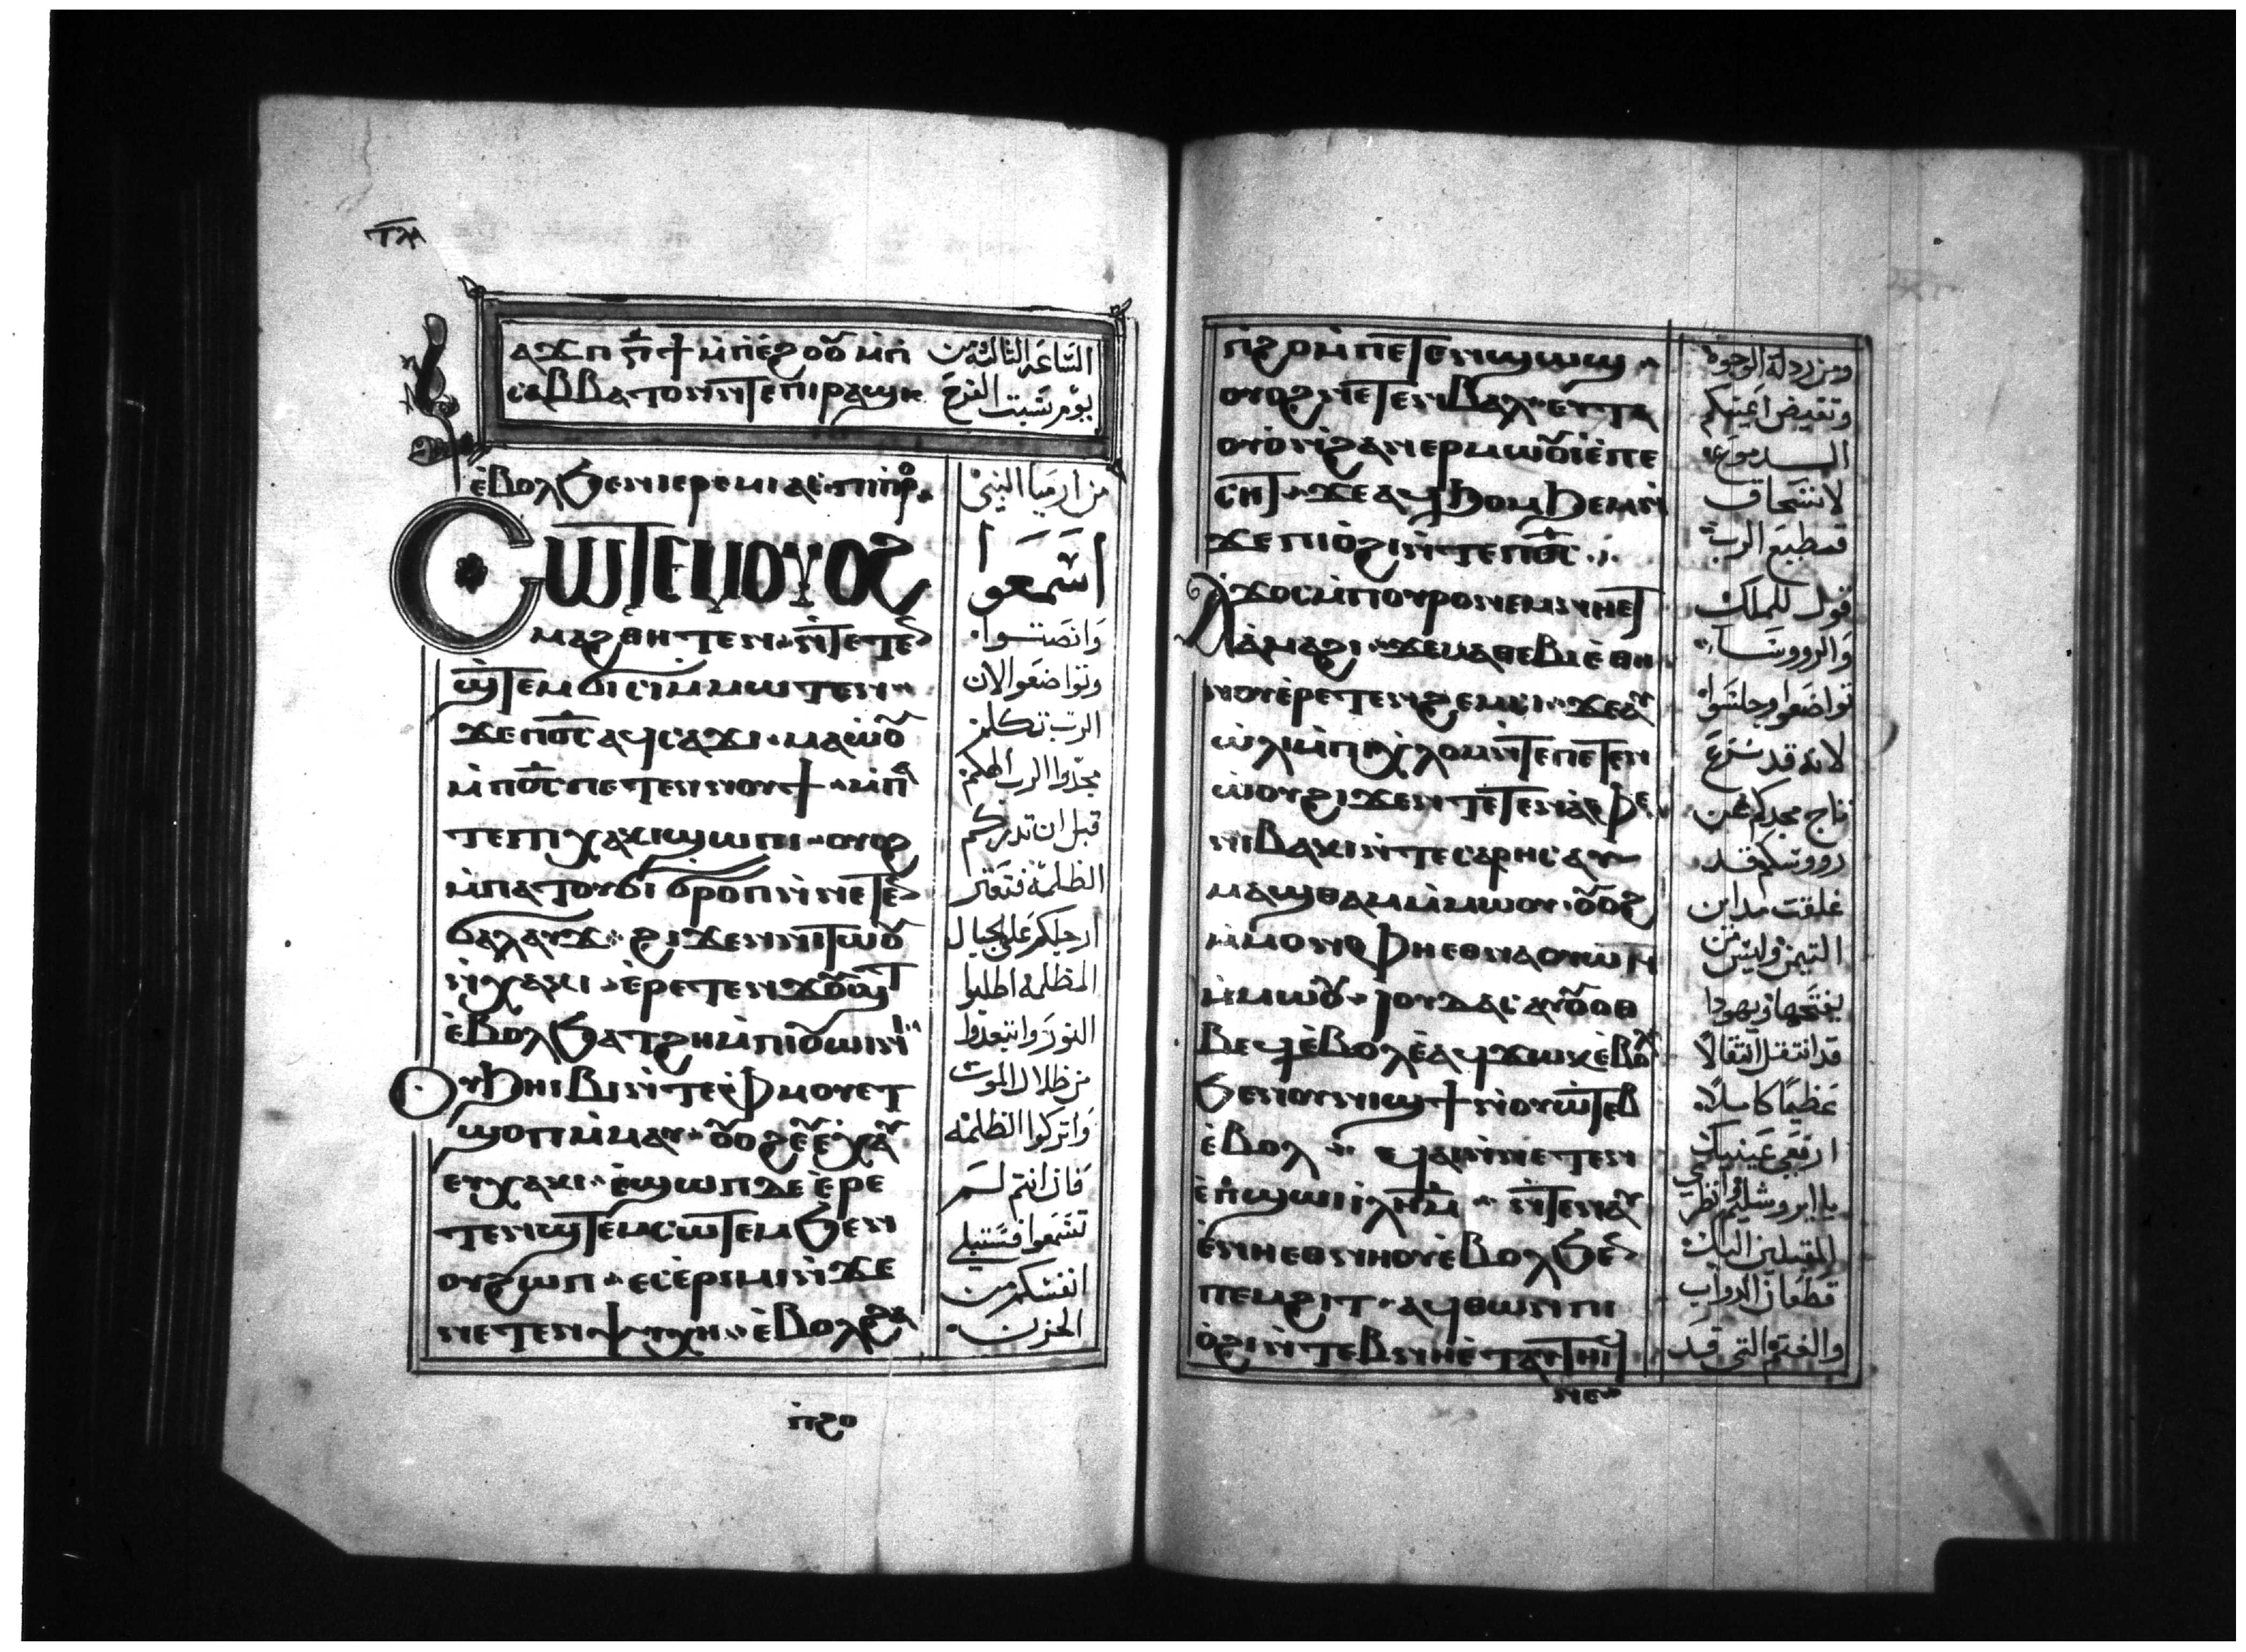 ⲧⲙ
ⲁϫⲡ ⲅ̅ϯ ⲙ̀ⲡⲉ̀ϩⲟⲟⲩ ⲙ̀ⲡⲓ
ⲥⲁⲃⲃⲁⲧⲟⲛ ⲛ̀ⲧⲉ ⲡⲓⲣⲁϣⲓ
الساعة الثالثة من
يوم سبت الفرح
ⲉ̀ⲃⲟⲗϧⲉⲛ ⲓⲉⲣⲉⲙⲓⲁⲥ ⲡⲓⲡⲣⲟ
ⲥⲱⲧⲉⲙ ⲟⲩⲟϩ
ⲙⲁϩⲑⲏⲧⲉⲛ ⲛ̀ⲧⲉⲧⲉ
ϣ̀ⲧⲉⲙϭⲓⲥⲓ ⲙ̀ⲙⲱⲧⲉⲛ
ϫⲉ ⲡⲟ̅ⲥ̅ ⲁϥⲥⲁϫⲓ ⲙⲁⲱ̀ⲟⲩ
ⲙ̀ⲡⲟ̅ⲥ̅ ⲡⲉⲧⲉⲛⲛⲟⲩϯ ⲙ̀ⲡⲁ
ⲧⲉ ⲡⲓⲭⲁⲕⲓ ϣⲱⲡⲓ ⲟⲩⲟϩ
ⲙ̀ⲡⲁⲧⲟⲩϭⲓ ϭⲣⲟⲡ ⲛ̀ⲛⲉⲧⲉ
ϭⲁⲗⲁⲩϫ ϩⲓϫⲉⲛ ⲛⲓⲧⲱⲟⲩ
ⲛ̀ⲭⲁⲕⲓ ⲉ̀ⲣⲉⲧⲉⲛϫⲟⲩϣⲧ
ⲉ̀ⲃⲟⲗϧⲁⲧϩⲏ ⲙ̀ⲡⲓⲟⲩⲱⲓⲛⲓ
ⲟⲩϧⲏⲓⲃⲓ ⲛ̀ⲧⲉ ⲫ̀ⲙⲟⲩ ⲉⲧ
ϣⲟⲡ ⲙ̀ⲙⲁⲩ ⲟⲩⲟϩ ⲉⲩⲉ̀ⲭⲁⲩ
ⲉⲩⲭⲁⲕⲓ ⲉ̀ϣⲱⲡ ⲇⲉ ⲉ̀ⲣⲉ
ⲧⲉⲛϣ̀ⲧⲉⲙⲥⲱⲧⲉⲙ ϧⲉⲛ
ⲟⲩϩⲱⲡ ⲉⲥⲉ̀ⲣⲓⲙⲓ ⲛ̀ϫⲉ
ⲛⲉⲧⲉⲛⲯⲩⲭⲏ ⲉ̀ⲃⲟⲗϩⲁ
ⲛ̀ϩⲟ
من ارميا النبي
اسمعوا
وانصتوا
وتواضعوا لان
الرب تكلم
مجدوا الرب الهكم
قبل ان تدرككم
الظلمة فتعثر
ارجلكم على الجبال
المظلمة اطلبوا
النور وابتعدوا
من ظلال الموت
واتركوا الظلمة
فان انتم لم
تسمعوا فستبكي
انفسكم من
الحزن
ⲛ̀ϩⲟ ⲙ̀ⲡⲉⲧⲉⲛϣⲱϣ
ⲟⲩⲟϩ ⲛⲉⲧⲉⲛⲃⲁⲗ ⲉⲩⲧⲁ
ⲟⲩⲟ̀ ⲛ̀ϩⲁⲛⲉⲣⲙⲱⲟⲩⲓ ⲉ̀ⲡⲉ
ⲥⲏⲧ ϫⲉ ⲁϥϧⲟⲙϧⲉⲙ ⲛ̀
ϫⲉ ⲡⲓⲟ̀ϩⲓ ⲛ̀ⲧⲉ ⲡⲟ̅ⲥ̅
ⲁϫⲟⲥ ⲙ̀ⲡⲟⲩⲣⲟ ⲛⲉⲙ ⲛⲏⲉⲧ
ⲁ̀ⲙⲁϩⲓ ϫⲉ ⲙⲁⲑⲉⲃⲓⲉ̀ ⲑⲏ
ⲛⲟⲩ ⲉ̀ⲣⲉⲧⲉⲛϩⲉⲙⲥⲓ ϫⲉ ⲁⲩ
ⲱ̀ⲗⲓ ⲙ̀ⲡⲓⲭ̀ⲗⲟⲙ ⲛ̀ⲧⲉ ⲡⲉⲧⲉⲛ
ⲱ̀ⲟⲩ ϩⲓϫⲉⲛ ⲧⲉⲧⲉⲛⲁ̀ⲫⲉ
ⲛⲓⲃⲁⲕⲓ ⲛ̀ⲧⲉ ⲥⲁⲣⲏⲥ ⲁⲩ
ⲙⲁϣⲑⲁⲙ ⲙ̀ⲙⲱⲟⲩ ⲟⲩⲟϩ
ⲙ̀ⲙⲟⲛ ⲫⲏⲉⲑⲛⲁⲟⲩⲱⲛ
ⲙ̀ⲙⲱⲟⲩ ⲓⲟⲩⲇⲁⲥ ⲁⲩⲟⲩⲟⲑ
ⲃⲉϥ ⲉ̀ⲃⲟⲗ ⲉ̀ⲁϥϫⲱⲕ ⲉ̀ⲃⲟⲗ
ϧⲉⲛ ⲟⲩⲛⲓϣϯ ⲛ̀ⲟⲩⲱ̀ⲧⲉⲃ
ⲉ̀ⲃⲟⲗ ϥⲁⲓ ⲛ̀ⲛⲉⲧⲉⲛ
ⲉ̀ⲡ̀ϣⲱⲓ ⲓ̀ⲗⲏⲙ ⲛ̀ⲧⲉⲛⲁⲩ
ⲉ̀ⲛⲏⲉⲑⲛⲏⲟⲩ ⲉ̀ⲃⲟⲗϧⲉ
ⲡⲉⲙϩⲓⲧ ⲁϥⲑⲱⲛ ⲡⲓ
ⲟ̀ϩⲓ ⲛ̀ⲧⲉⲃⲛⲏ ⲉ̀ⲧⲁⲩⲧⲏⲓϥ
ⲛⲉ
ومن ردلة الوجوه
وتفيض اعينكم
الدموع
لانسحاق
قطيع الرب
قول للملك
والرووسا
تواضعوا وجلسوا
لانه قد نزع
تاج مجدكم عن
رووسكم قد
غلقت مداين
التيمن وليس من
يفتحها ويهودا
قد انتقل انتقالا
عظيما كاملا
ارفعي عينيك
يا ايروشليم وانظري
المقبلين اليك
قطعان الدواب
والغنم التي قد